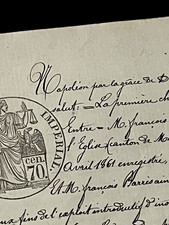 Napoléon par la grâce de D
salut: = La première ch
Entre = M. françois
l'Eglise (canton de M
Avril 1861 enregistré,
Et M. françois
aux fins de l'exploit introductif d'ins
IMPERIAL
cen.
70